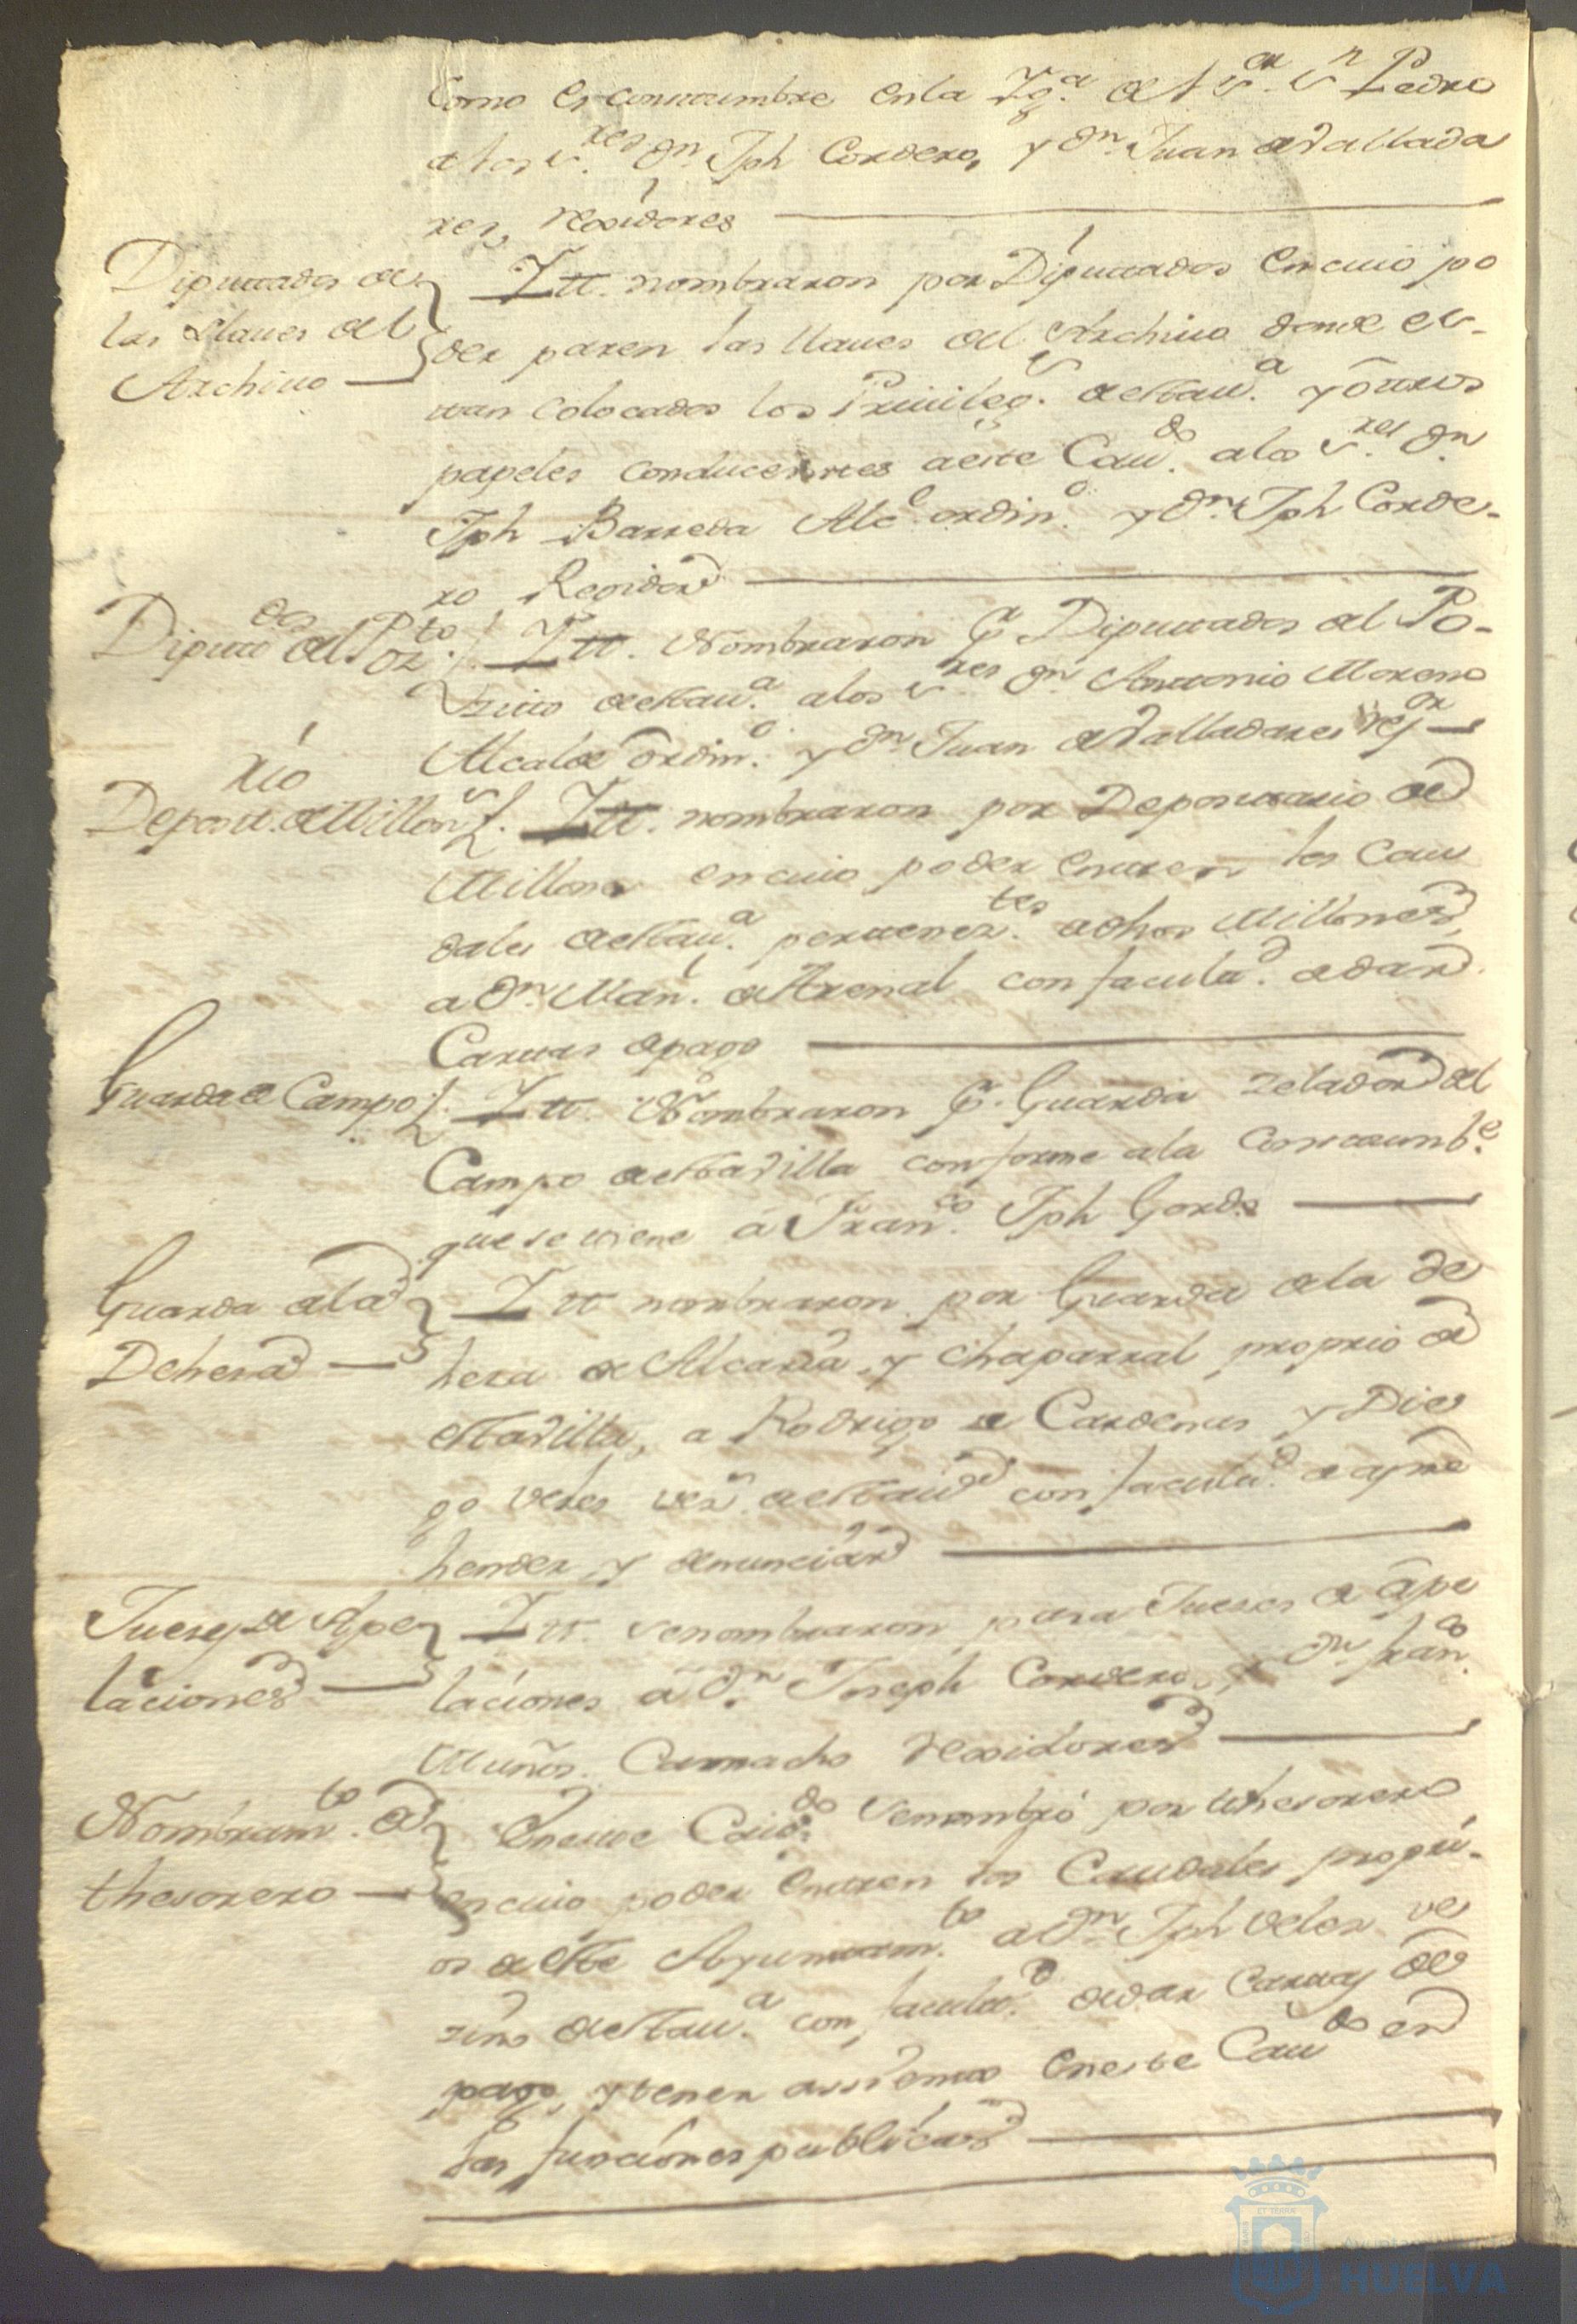 como es constumbre en la Yg.a de el S.or S.n Pedro
a los S.res D.n Jph Cordero, y D.n Juan de Vallada
res, rexidores
Diputados de
las Llaues del
Archiuo
Itt. nombraron por Diputados en cuio po
der paren las llaues del Archiuo donde es-
tan colocados los Priuileg.s de esta u.a y otros
papeles conducentes a este Cau.do a los S.res D.n
Jph Barreda Alc.e ordin.o y D.n Jph Corde-
ro Regidor
Diputados del Po.to
Itt. Nombraron p.r Diputados del Po-
zito de esta u.a a los S.res D.n Antonio Moreno
Alcalde ordin.o y D.n Juan de Valladares rej.or
Deposit.rio de Millon.s
Itt. nombraron por Depositario de
Millones en cuio poder entren los Cau
dales de esta u.a pertenez.tes a dhos Millones,
a D.n Man.l de Arenal con facultad de dar
Cartas de pago
Guarda de Campo
Itt. Nombraron p.r Guarda zelador del
Campo de esta Villa conforme a la Constumb.e
que se tiene a Fran.co Jph Gordo
Guarda de la
Dehesa
Itt nombraron por Guarda de la de
hesa de Alcaria, y Chaparral proprio de
esta Villa, a Rodrigo de Cardenas y Die
go Veles vez.s de esta uilla con facultad de apre
hender, y denunciar
Jueses de Ape
laciones
Itt. se nombraron para Jueses de ape
laciones a D.n Joseph Cordero, y D.n Fran.co
Muños Camacho rexidores
Nombram.to de
thesorero
En este Cau.do se nombró por thesorero
en cuio poder entren los Caudales propri-
os de este Ayuntam.to a D.n Jph Velez ve
zino de esta u.a con facultad de dar Cartas de
pago, y tener assiento en este Cau.do en
las funciones publicas
HUELVA